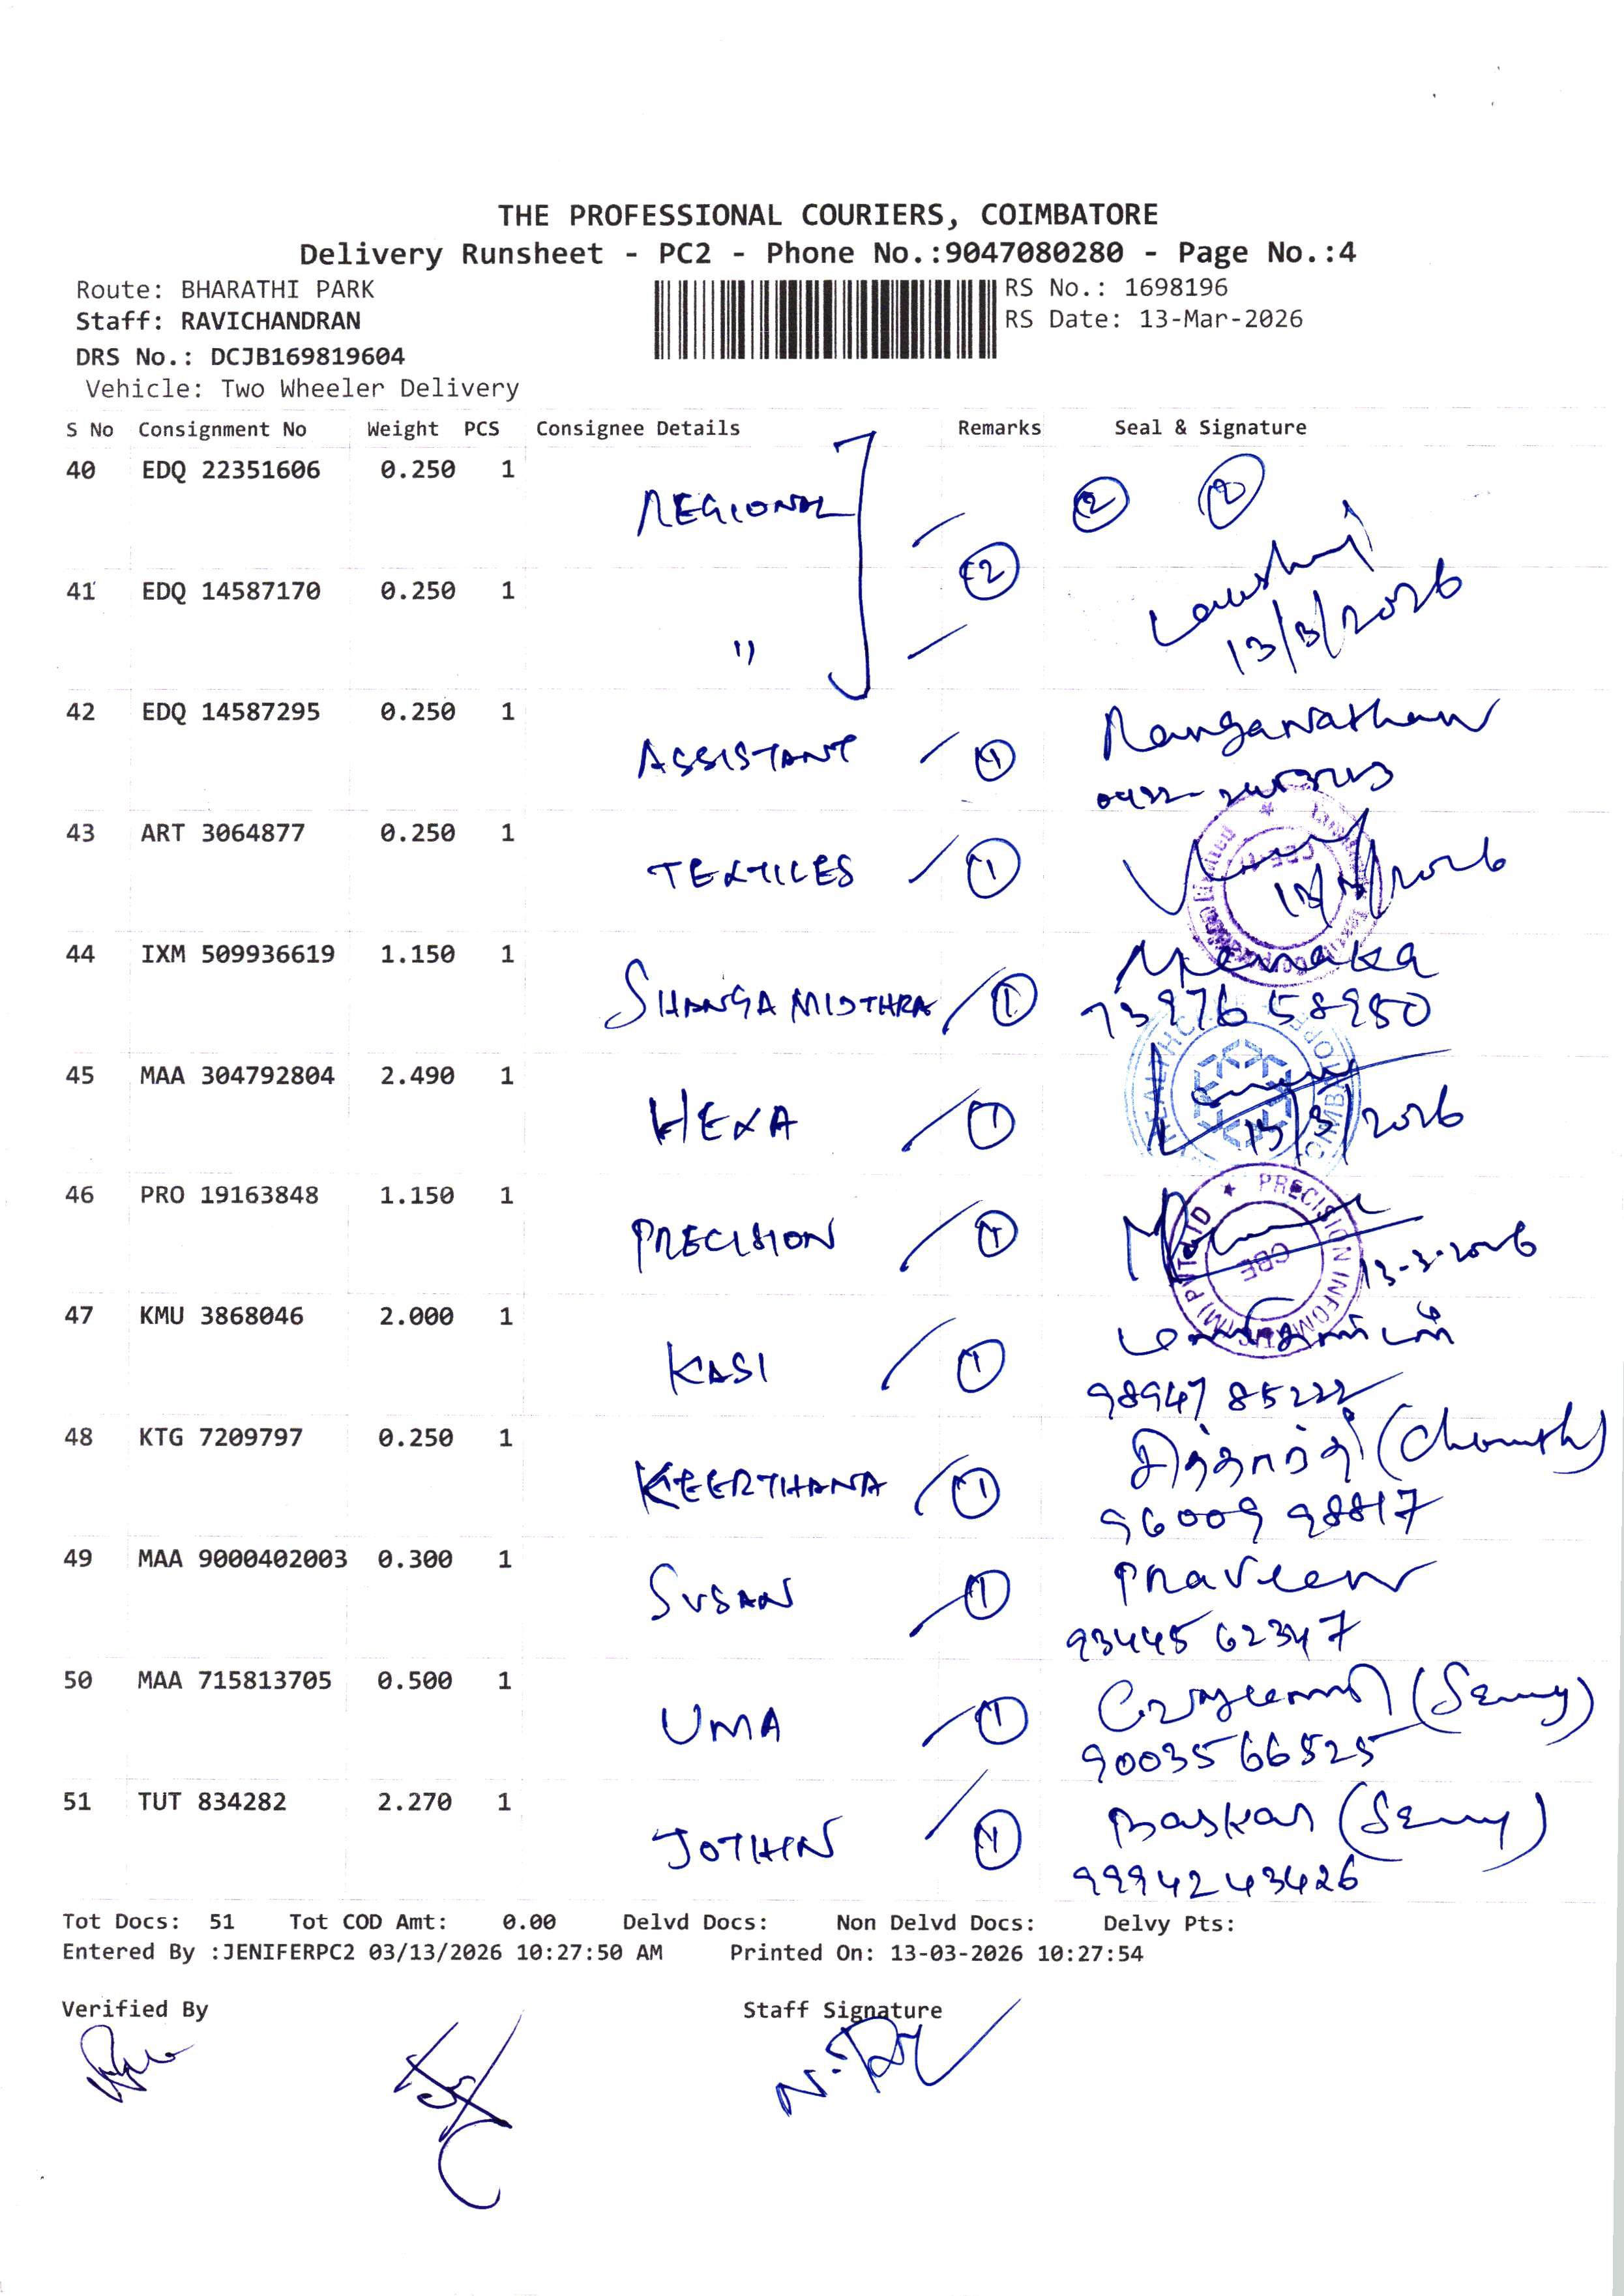 THE PROFESSIONAL COURIERS, COIMBATORE
Delivery Runsheet - PC2 - Phone No.:9047080280 - Page No.:4
Route: BHARATHI PARK
Staff: RAVICHANDRAN
DRS No.: DCJB169819604
Vehicle: Two Wheeler Delivery
RS No.: 1698196
RS Date: 13-Mar-2026
S No Consignment No Weight PCS Consignee Details Remarks Seal & Signature
40 EDQ 22351606 0.250 1 REGIONAL 2 2
41 EDQ 14587170 0.250 1 " 2 13/3/2026
42 EDQ 14587295 0.250 1 ASSISTANT 1 Ranganathan
43 ART 3064877 0.250 1 TEXTILES 1 13/3/2026
44 IXM 509936619 1.150 1 SHANGAMIDTHRA 1 Menaka
73976 58950
45 MAA 304792804 2.490 1 HEXA 1 13/3/2026
46 PRO 19163848 1.150 1 PRECISION 1 13-3-2026
PRECISION INFOMATIC (M) PVT LTD
CBE
47 KMU 3868046 2.000 1 KASI 1
98947 85222
48 KTG 7209797 0.250 1 KEERTHANA 1
96009 98817
49 MAA 9000402003 0.300 1 SUSAN 1 Praveen
93445 62347
50 MAA 715813705 0.500 1 UMA 1
90035 66525
51 TUT 834282 2.270 1 JOTHIN 1 Baskar
99942 43426
Tot Docs: 51 Tot COD Amt: 0.00 Delvd Docs: Non Delvd Docs: Delvy Pts:
Entered By :JENIFERPC2 03/13/2026 10:27:50 AM Printed On: 13-03-2026 10:27:54
Verified By Staff Signature